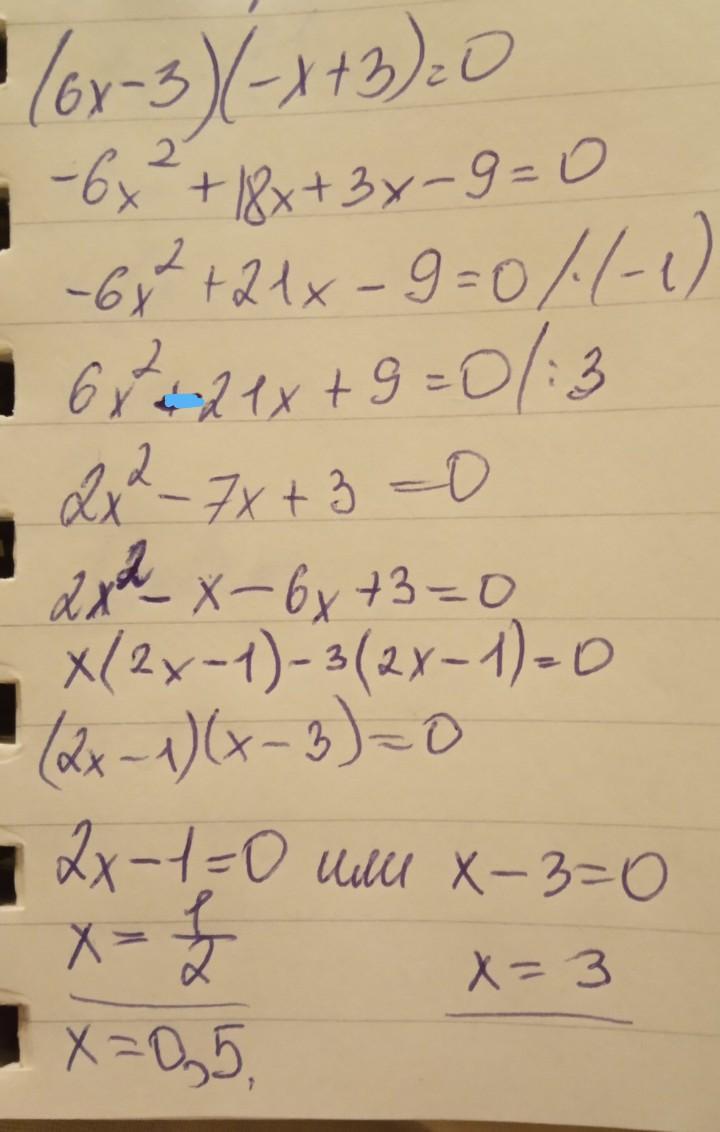 (6x-3)(-x+3)=0
-6x²+18x+3x-9=0
-6x²+21x-9=0/·(-1)
6x²-21x+9=0/:3
2x²-7x+3=0
2x²-x-6x+3=0
x(2x-1)-3(2x-1)=0
(2x-1)(x-3)=0
2x-1=0 или x-3=0
x=1/2 x=3
x=0,5.